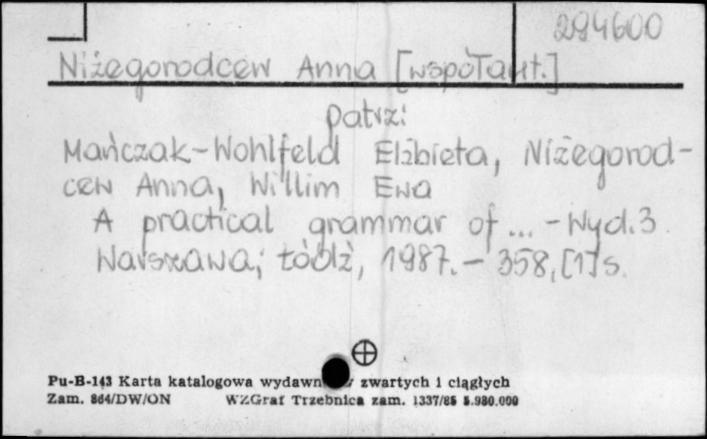 294600
Niżegorodcew Anna [współaut.]
patrz:
Mańczak-Wohlfeld Elżbieta, Niżegorod-
cew Anna, Willim Ewa
A practical grammar of ... - Wyd. 3.
Warszawa; Łódź, 1987. - 358, [1] s.
Pu-B-143 Karta katalogowa wydawn zwartych i ciągłych
Zam. 864/DW/ON WZGraf Trzebnica zam. 1337/86 5.980.000